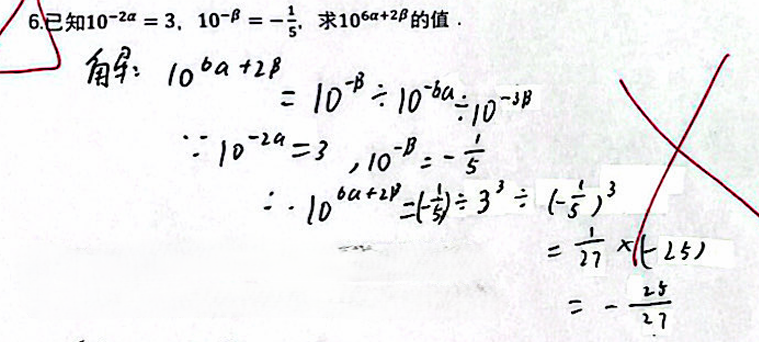 6.已知10^{-2α} = 3, 10^{-β} = -\frac{1}{5}, 求10^{6α+2β}的值.
解: 10^{6α+2β}
= 10^{-β} ÷ 10^{-6α} ÷ 10^{-3β}
∵ 10^{-2α} = 3, 10^{-β} = -\frac{1}{5}
∴ 10^{6α+2β} = (-\frac{1}{5}) ÷ 3^3 ÷ (-\frac{1}{5})^3
= \frac{1}{27} × (-25)
= -\frac{25}{27}